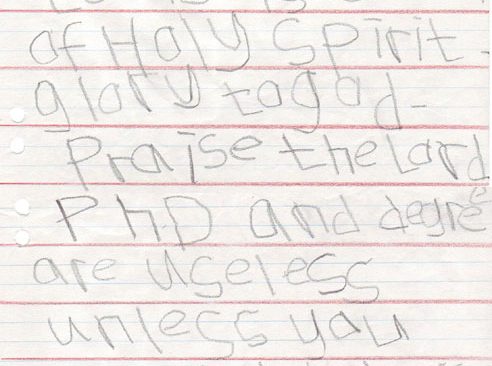 of Holy Spirit -
glory to god -
Praise the Lord
PhD and degree
are useless
unless you